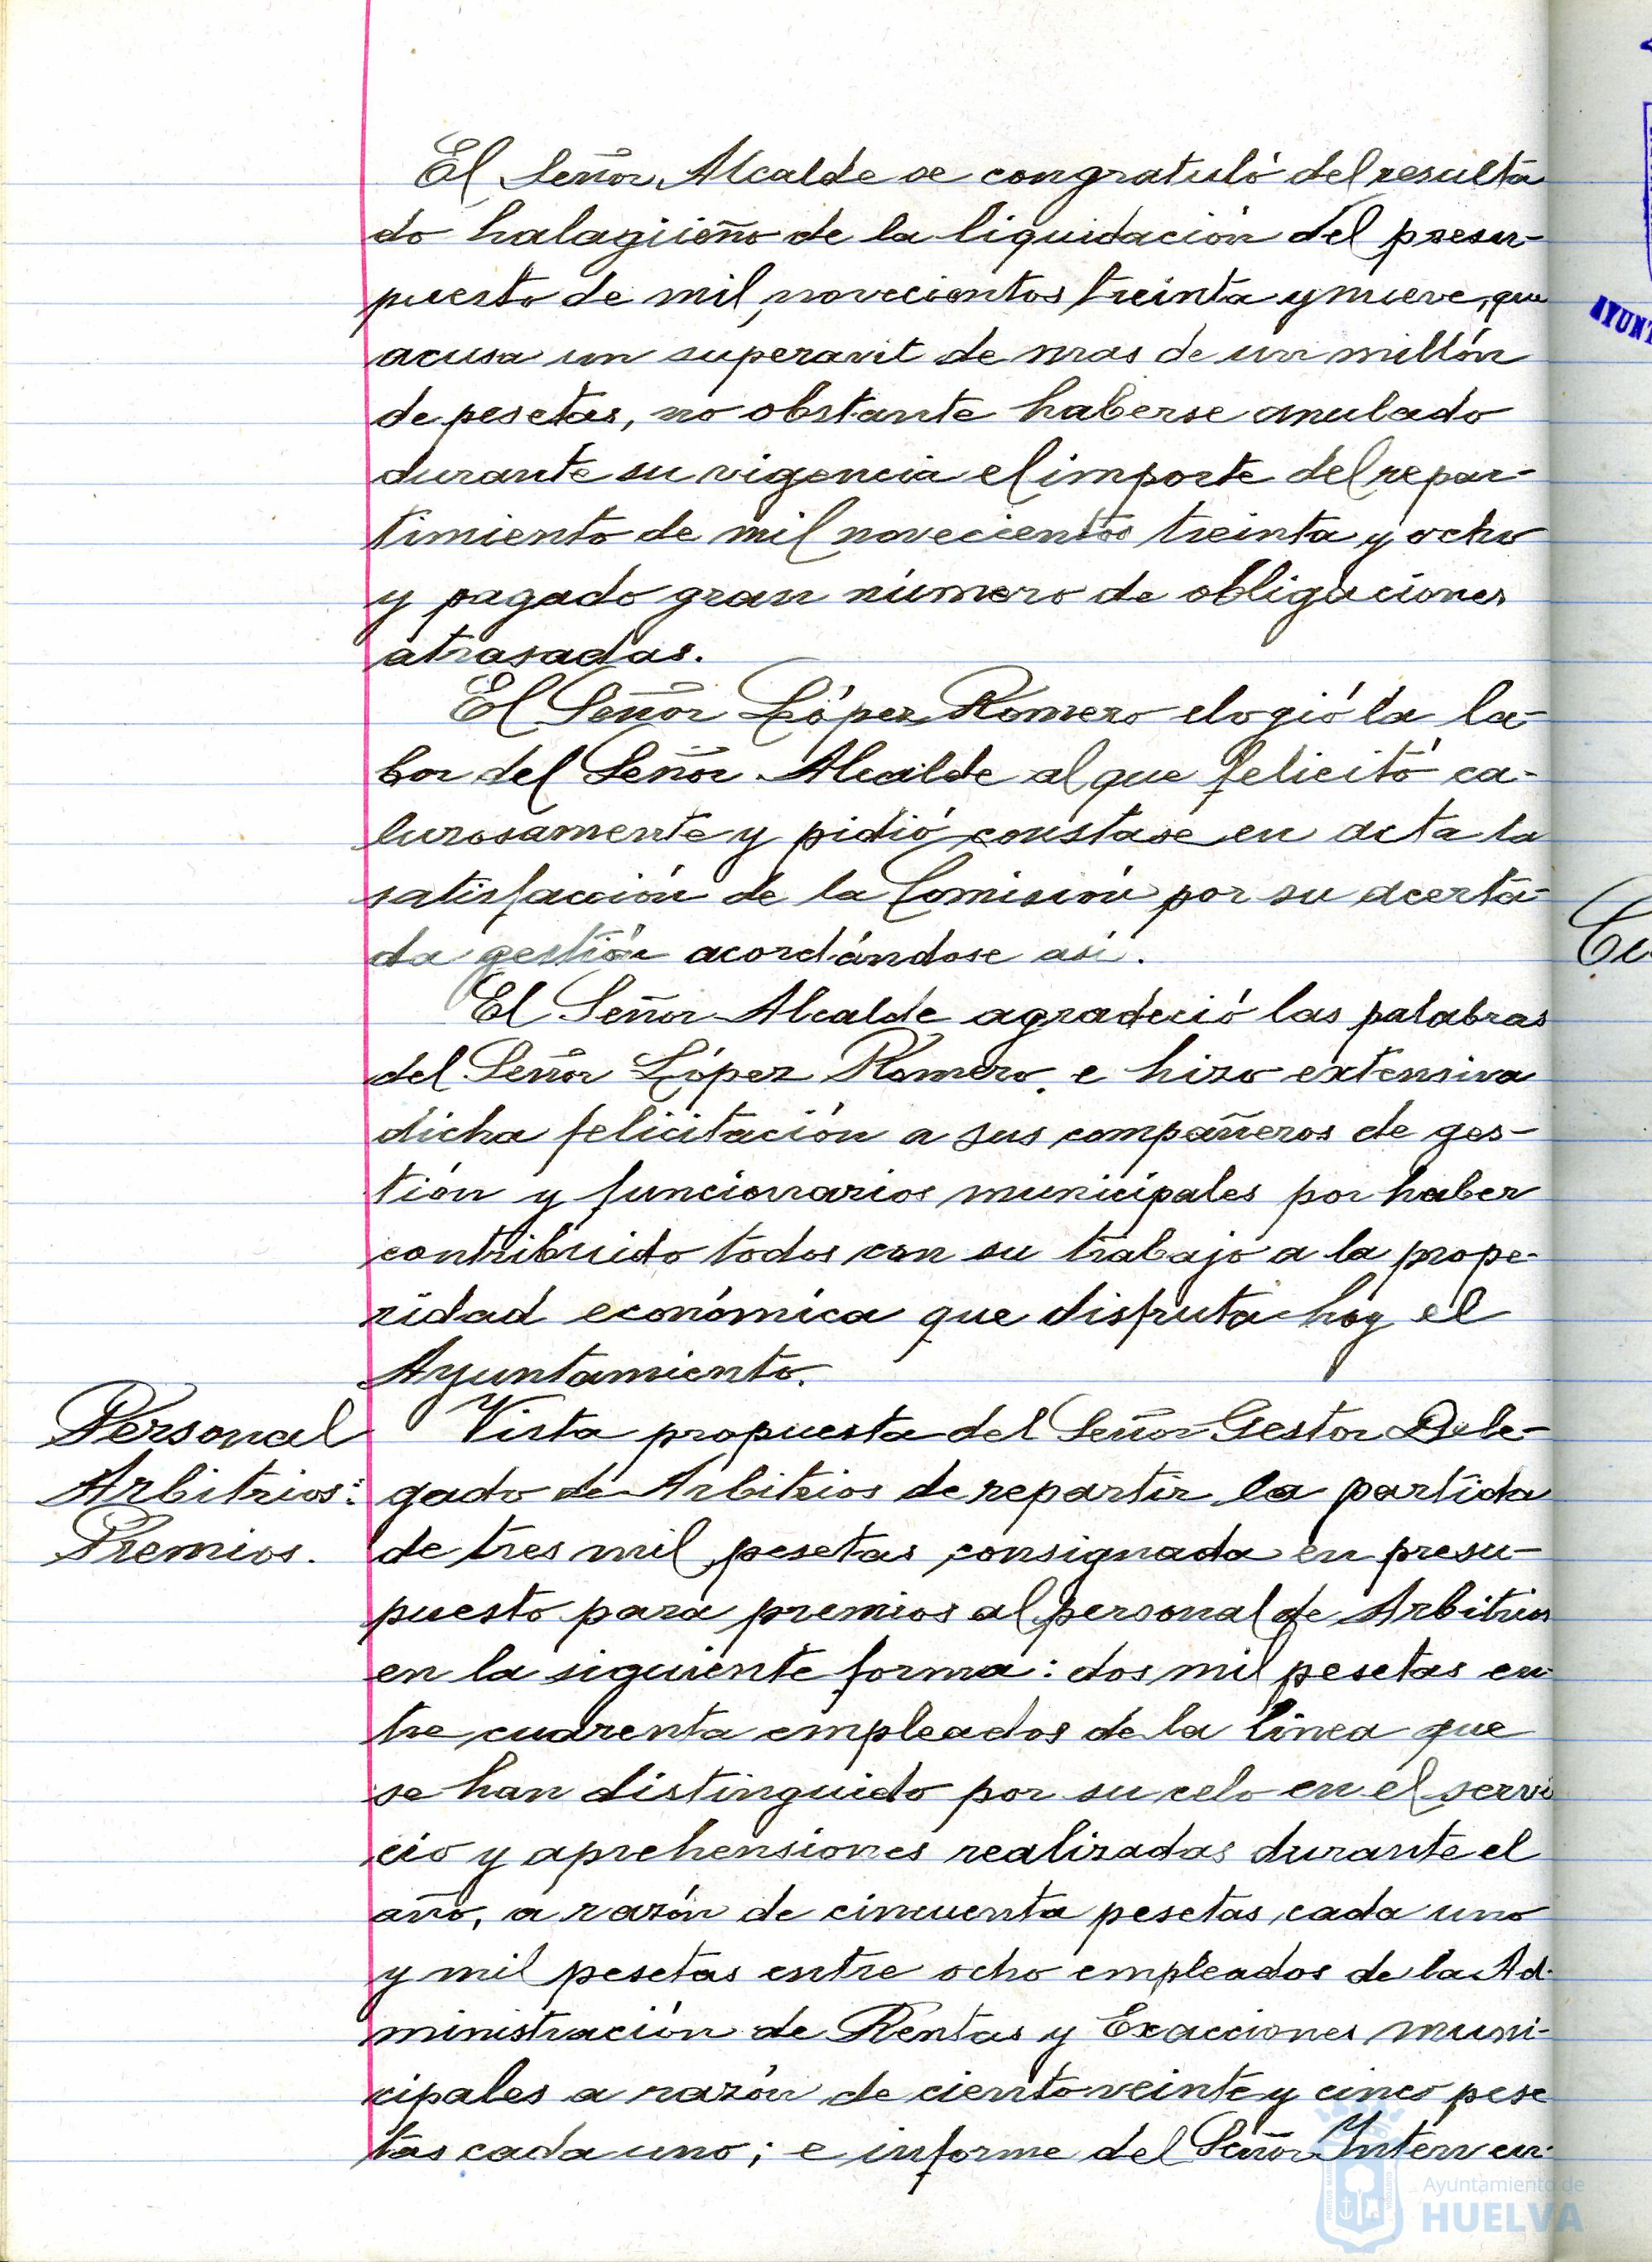 El Señor Alcalde se congratuló del resulta
do halagüeño de la liquidación del presu-
puesto de mil, novecientos treinta y nueve, que
acusa un superavit de mas de un millón
de pesetas, no obstante haberse anulado
durante su vigencia el importe del repar-
timiento de mil novecientos treinta y ocho
y pagado gran número de obligaciones
atrasadas.
El Señor López Romero elogió la la-
bor del Señor Alcalde al que felicitó ca-
lurosamente y pidió constase en acta la
satisfacción de la Comisión por su acerta-
da gestión acordándose asi.
El Señor Alcalde agradeció las palabras
del Señor López Romero e hizo extensiva
dicha felicitación a sus compañeros de ges-
tión y funcionarios municipales por haber
contribuido todos con su trabajo a la prope-
ridad económica que disfruta hoy el
Ayuntamiento.
Personal
Arbitrios:
Premios.
Vista propuesta del Señor Gestor Dele-
gado de Arbitrios de repartir la partida
de tres mil pesetas consignada en presu-
puesto para premios al personal de Arbitrios
en la siguiente forma: dos mil pesetas en-
tre cuarenta empleados de la linea que
se han distinguido por su celo en el servi
cio y aprehensiones realizadas durante el
año, a razón de cincuenta pesetas cada uno
y mil pesetas entre ocho empleados de la Ad-
ministración de Rentas y Exacciones muni-
cipales a razón de ciento veinte y cinco pese
tas cada uno; e informe del Señor Interven-
AYUNT
Ayuntamiento de
HUELVA